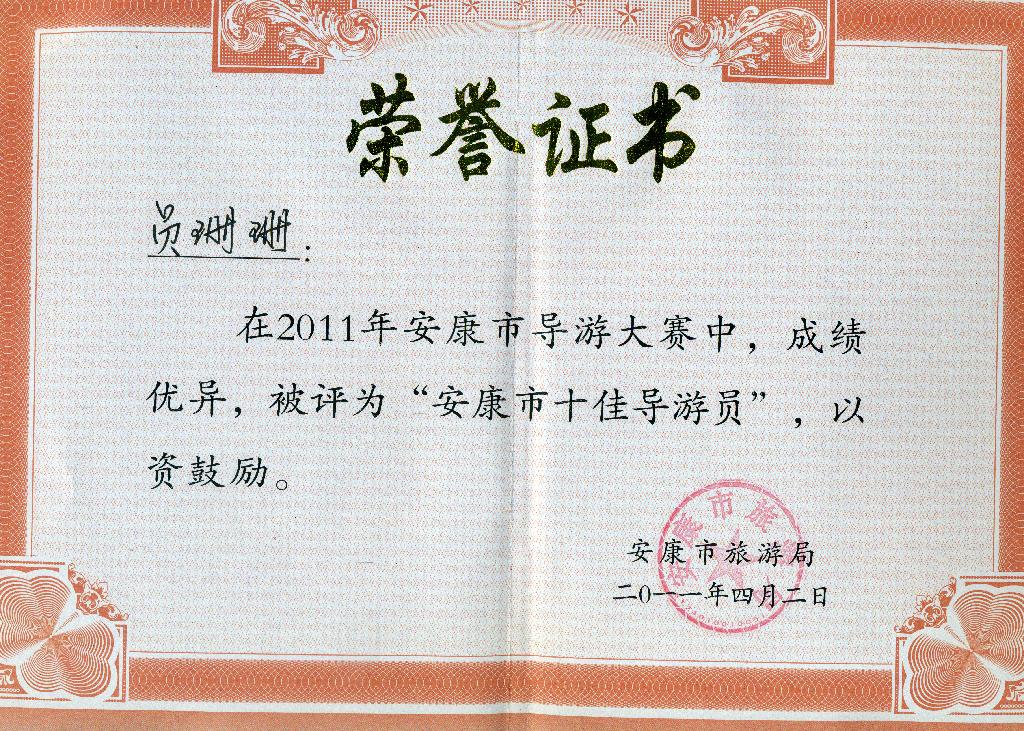 荣誉证书
员珊珊：
在2011年安康市导游大赛中，成绩
优异，被评为“安康市十佳导游员”，以
资鼓励。
安康市旅游局
二0一一年四月二日
安康市旅